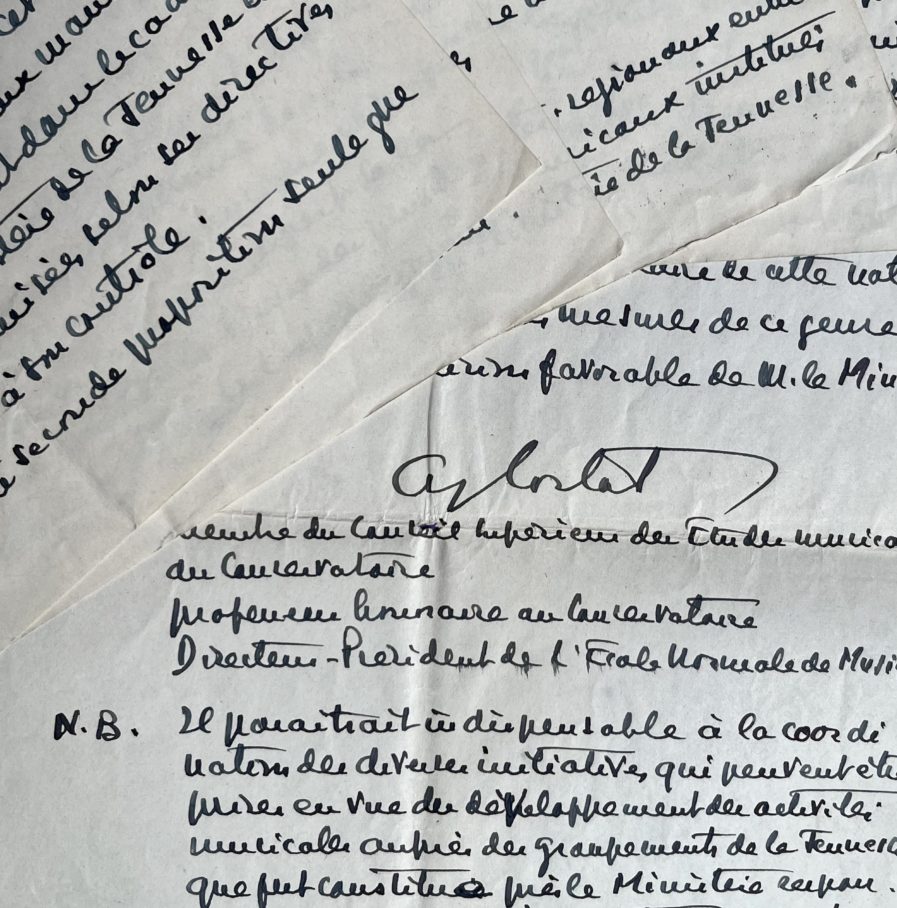 dans le ca
de la Jeunesse
selon ses directives
à son contrôle.
seconde proposition seule que
regionaux
institués
de la Jeunesse.
de cette nat
mesures de ce genre
favorable de M. le Min
membre du Conseil Supérieur des Etudes musica
du Conservatoire
professeur honoraire au Conservatoire
Directeur-Président de l'Ecole Normale de Musi
N.B. Il paraitrait indispensable à la coordi
nation des diverses initiatives, qui peuvent êt
prises en vue du développement des activités
musicales auprès des groupements de la Jeunesse
que fut constitué près le Ministère